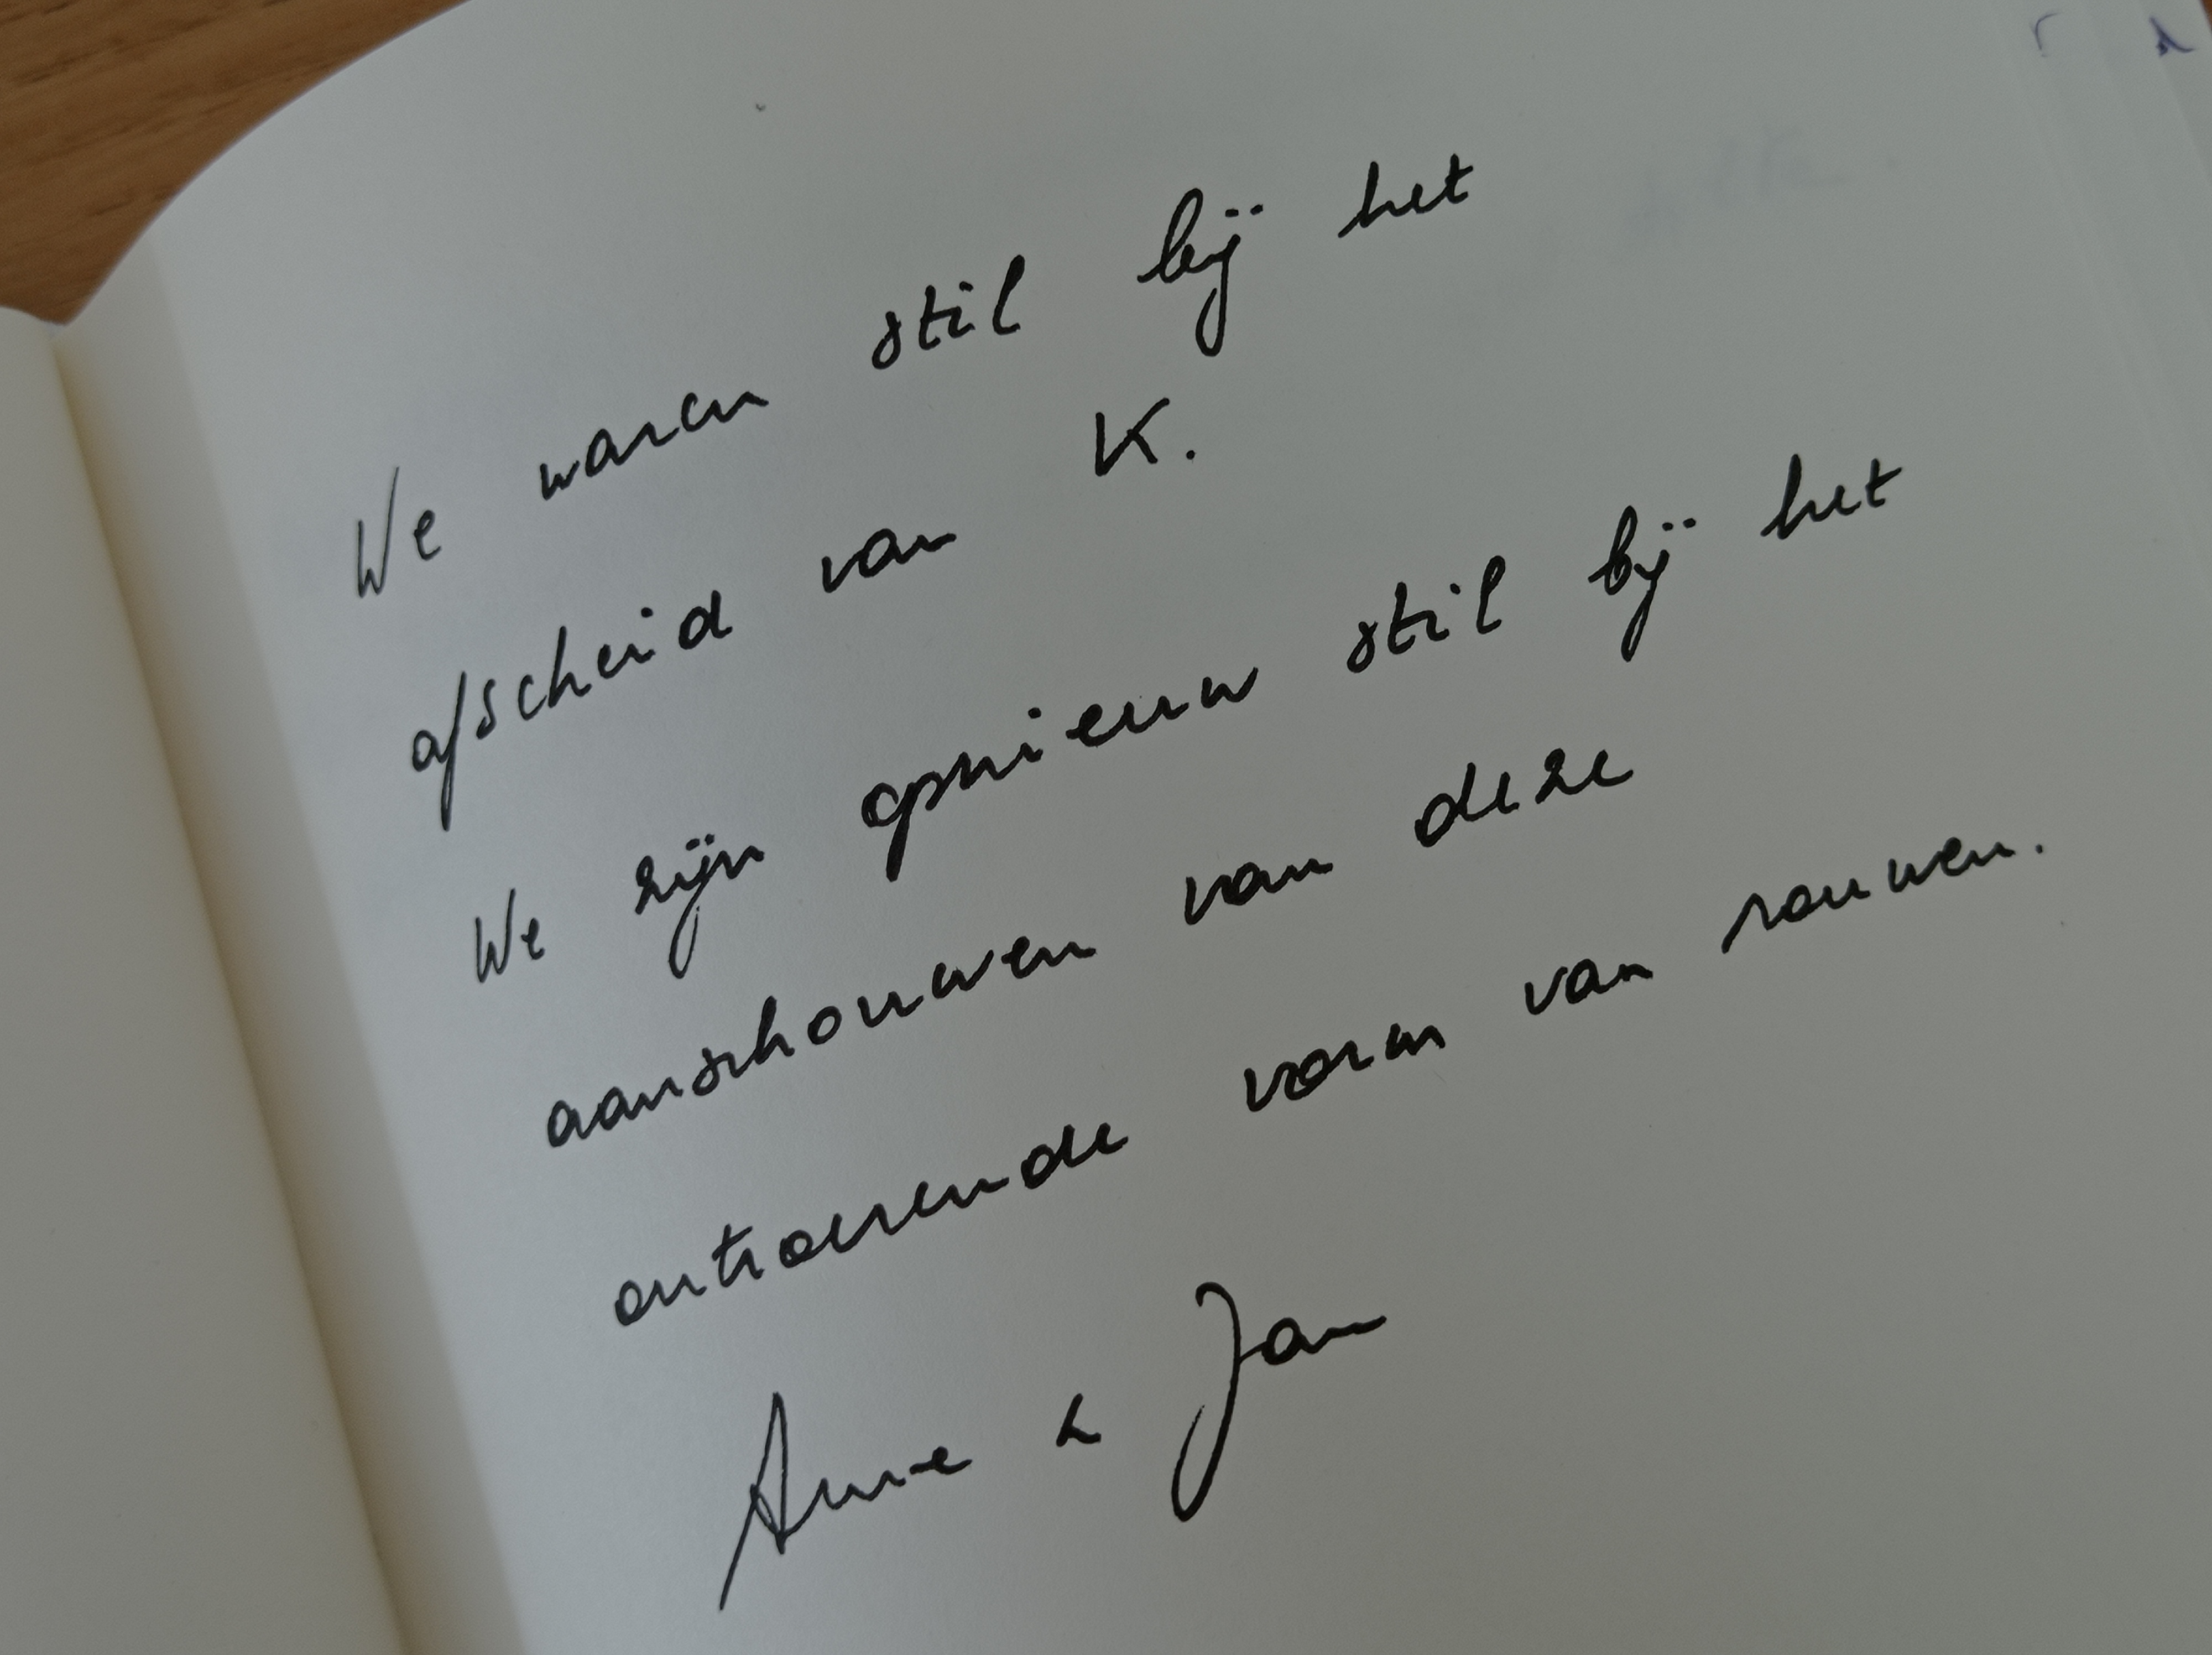 We waren stil bij het
afscheid van K.
We zijn opnieuw stil bij het
aanschouwen van deze
ontroerende vorm van rouwen.
Anne & Jan